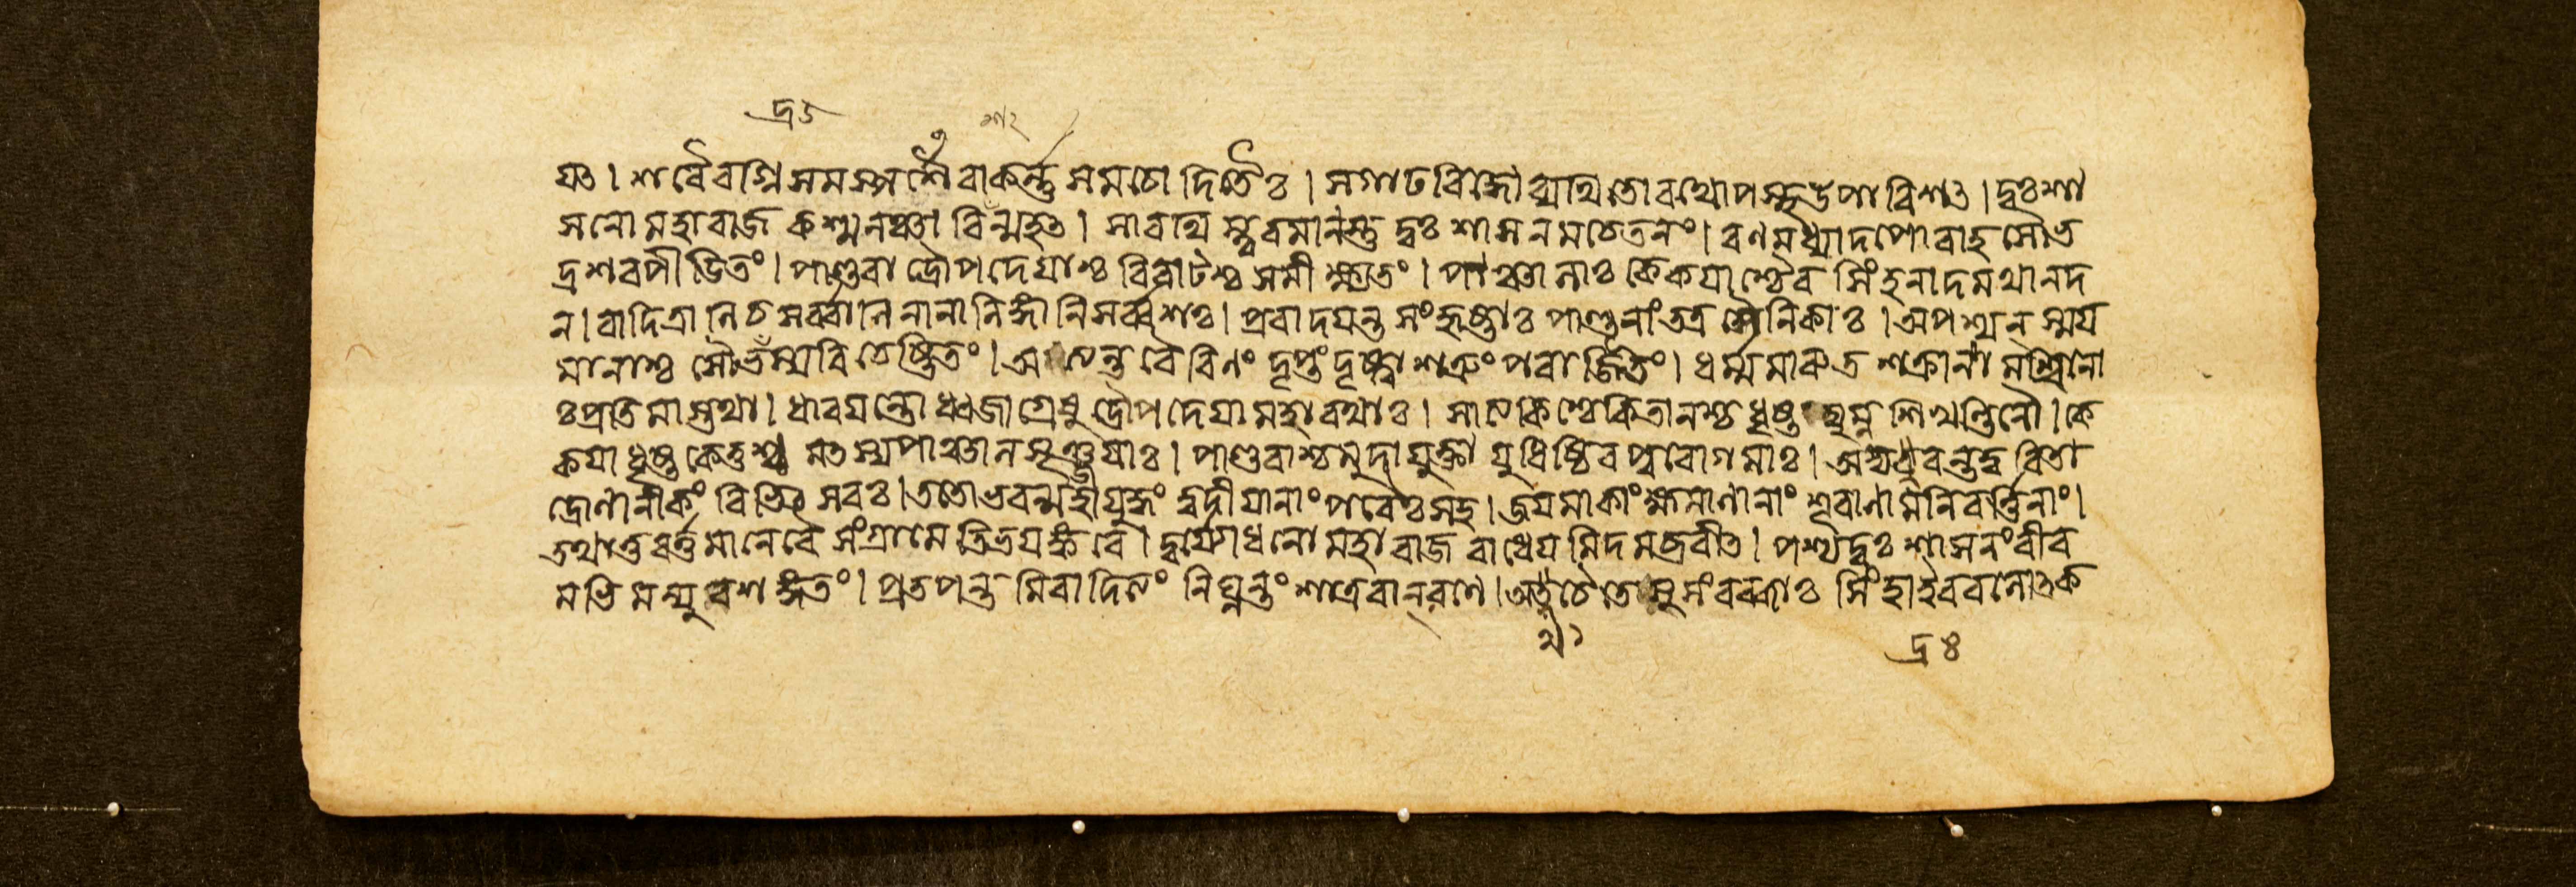 দ্র ১
যৎ। শরৈরগ্নিসমস্পর্শৈরাকর্ন্নসমচোদিতৈঃ। সগাঢবিদ্ধো ব্যথিতো রথোপস্থউপাবিশৎ। দুঃশা
সনো মহারাজ কশ্মলঞ্চাবিশন্মহৎ। সারথিস্ত্বরমানস্তু দুঃশাসনমচেতনং। রণমধ্যাদপোবাহ সৌভ
দ্রশরপীডিতং। পাণ্ডবা দ্রৌপদেয়াশ্চ বিরাটশ্চ সমীক্ষ্যতং। পাঞ্চালাঃ কেকয়াশ্চৈব সিংহনাদমথানদ
ন। বাদিত্রানি চ সর্ব্বানি নানালিঙ্গানি সর্ব্বশঃ। প্রবাদয়ন্ত সংহৃষ্টাঃ পাণ্ডূনাং তত্র সৈনিকাঃ। অপশ্যন্ স্ময
মানাশ্চ সৌভদ্রস্য বিচেষ্টিতং। অত্যন্তবৈরিণং দৃপ্তং দৃষ্ট্বা শত্রুং পরাজিতং। ধর্ম্মমারুত শক্রানামশ্বিনো
ঃ প্রতিমাস্তথা। ধারয়ন্তো ধ্বজাগ্রেষু দ্রৌপদেয়া মহারথাঃ। সাত্যকিশ্চেকিতানশ্চ ধৃষ্টদ্যুম্নশিখণ্ডিনৌ। কে
কয়া ধৃষ্টকেতুশ্চ মৎস্যপাঞ্চালসৃঞ্জয়াঃ। পাণ্ডবাশ্চ মুদাযুক্তা যুধিষ্ঠিরপুরোগমাঃ। অভ্যদ্রবন্ত ত্বরিতা
দ্রোণানীকং বিভিৎসবঃ। ততোভবন্মহাযুদ্ধং ত্বদীয়ানাং পরৈঃ সহ। জয়মাকাংক্ষমাণানাং শূরাণামনিবর্ত্তিনাং।
তথা তু বর্ত্তমানে বৈ সংগ্রামেতিভয়ঙ্করে। দুর্য্যোধনো মহারাজ রাধেয়মিদমব্রবীৎ। পশ্য দুঃশাসনং বীর
মভিমন্যুবশঙ্গতং। প্রতপন্তমিবাদিত্যং নিঘ্নন্তং শাত্রবান্ রণে। অথ চৈতে সুসংরব্ধাঃ সিংহাইব বলোৎক
দ্র ৪